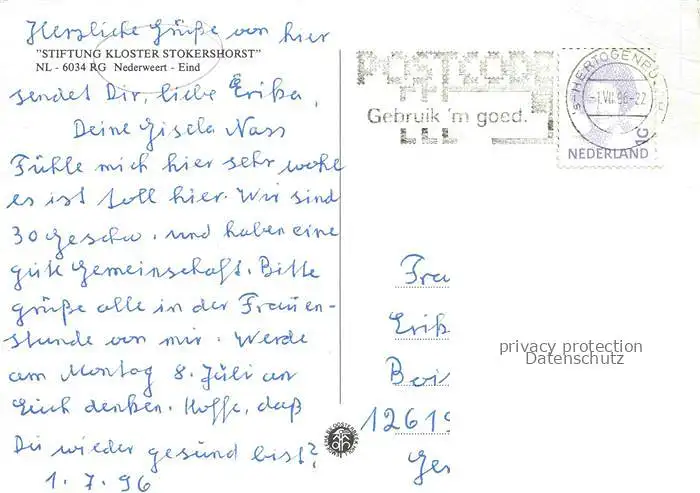 Herzliche Grüße von hier
"STIFTUNG KLOSTER STOKERSHORST"
NL - 6034 RG Nederweert - Eind
sendet Dir, liebe Erika,
Deine Gisela Nass
Fühle mich hier sehr wohl
es ist toll hier. Wir sind
30 Geschw. und haben eine
gute Gemeinschaft. Bitte
grüße alle in der Frauen-
stunde von mir. Werde
am Montag 8. Juli an
Euch denken. Hoffe, daß
Du wieder gesund bist?
1. 7. 96
POSTCODE
Gebruik 'm goed.
's-HERTOGENBO
-1.VII.96-22
NEDERLAND
Frau
Erik
12619
Ger
privacy protection
Datenschutz